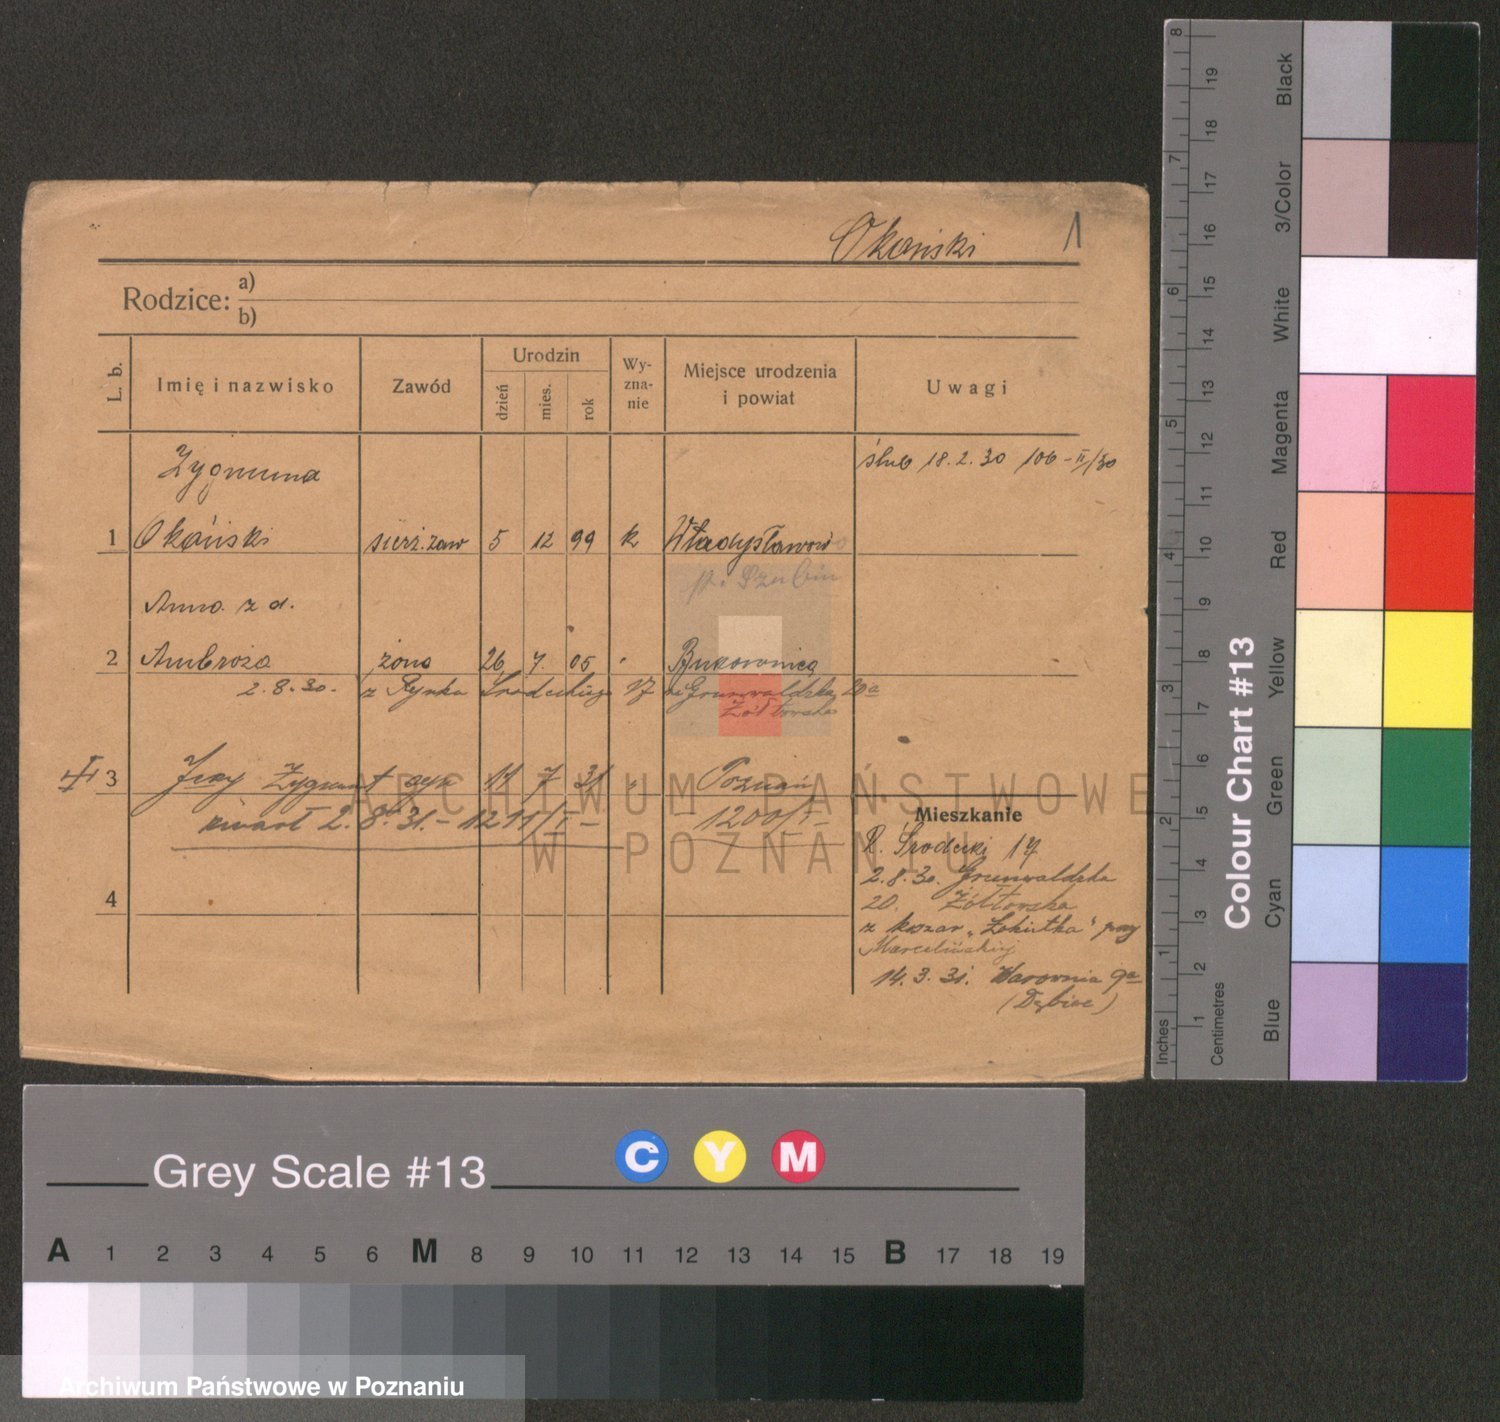 Okański 1
Rodzice: a)
b)
L. b.
Imię i nazwisko
Zawód
Urodzin
dzień
mies.
rok
Wy-
zna-
nie
Miejsce urodzenia
i powiat
Uwagi
ślub 18.2.30 106-II/30
Zygmund
1 Okański sierż. zaw 5 12 99 k Władysławowo
p. Szubin
Anna z d.
2 Ambroża żona 26 7. 05 Bukownica
2.8.30. z Rynku Śródeckiego 17 Grunwaldzka 20a
Żółtowska
3 Jerzy Zygmunt syn 11 7 31 " Poznań
zmarł 2.8.31.- 1211/I- 1200/I-
4
Mieszkanie
R. Środecki 17
2.8.30. Grunwaldzka
20. Żółtowska
z koszar „Łokietka" przy
Marcelińskiej
14.3.31. Warownia 9a
(Dębiec)
ARCHIWUM PAŃSTWOWE
W POZNANIU
Colour Chart #13
Black
3/Color
White
Magenta
Red
Yellow
Green
Cyan
Blue
Inches 1 2 3 4 5 6 7 8
Centimetres 1 2 3 4 5 6 7 8 9 10 11 12 13 14 15 16 17 18 19
Grey Scale #13
C Y M
A 1 2 3 4 5 6 M 8 9 10 11 12 13 14 15 B 17 18 19
Archiwum Państwowe w Poznaniu